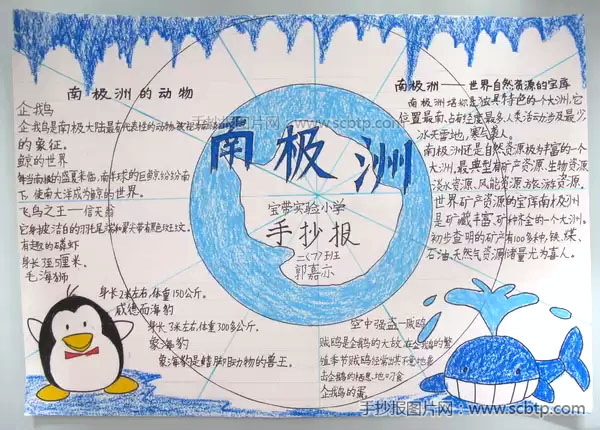 南极洲的动物
企我鸟
企我鸟是南极大陆最有代表性的动物,被视为南极
的象征。
鲸的世界
每当南极的盛夏来临,南半球的巨鲸纷纷南
下,使南大洋成为鲸的世界。
飞鸟之王——信天翁
它身披洁白的羽毛尾端和翼尖带有黑色斑纹。
有趣的磷虾
身长
厘米。
毛海狮
身长2米左右,体重150公斤。
威德而海豹
身长3米左右,体重300多公斤。
象海豹
象海豹是鳍脚动物的兽王。
南极洲
宝带实验小学
手抄报
二(7)班
郭嘉示
南极洲——世界自然资源的宝库
南极洲堪称是独具特色的个大洲,它
位置最南,占有经度最多人类活动涉及最少
冰天雪地,寒气袭人。
南极洲还是自然资源极为丰富的一个
大洲。最典型有矿产资源、生物资源
淡水资源、风能资源、旅游资源。
世界矿产资源的宝库南极洲
是矿藏丰富、矿种齐全的一个大洲。
初步查明的矿产有100多种,铁、煤、
石油、天然气资源储量尤为喜人。
空中强盗一贼鸥
贼鸥是企鹅的大敌,在企鹅的繁
殖季节贼鸥经常出其不意地袭
击企鹅的栖息地,叼食
企我鸟的蛋
手抄报图片网:www.scbtp.com
手抄报图片网:www.scbtp.com